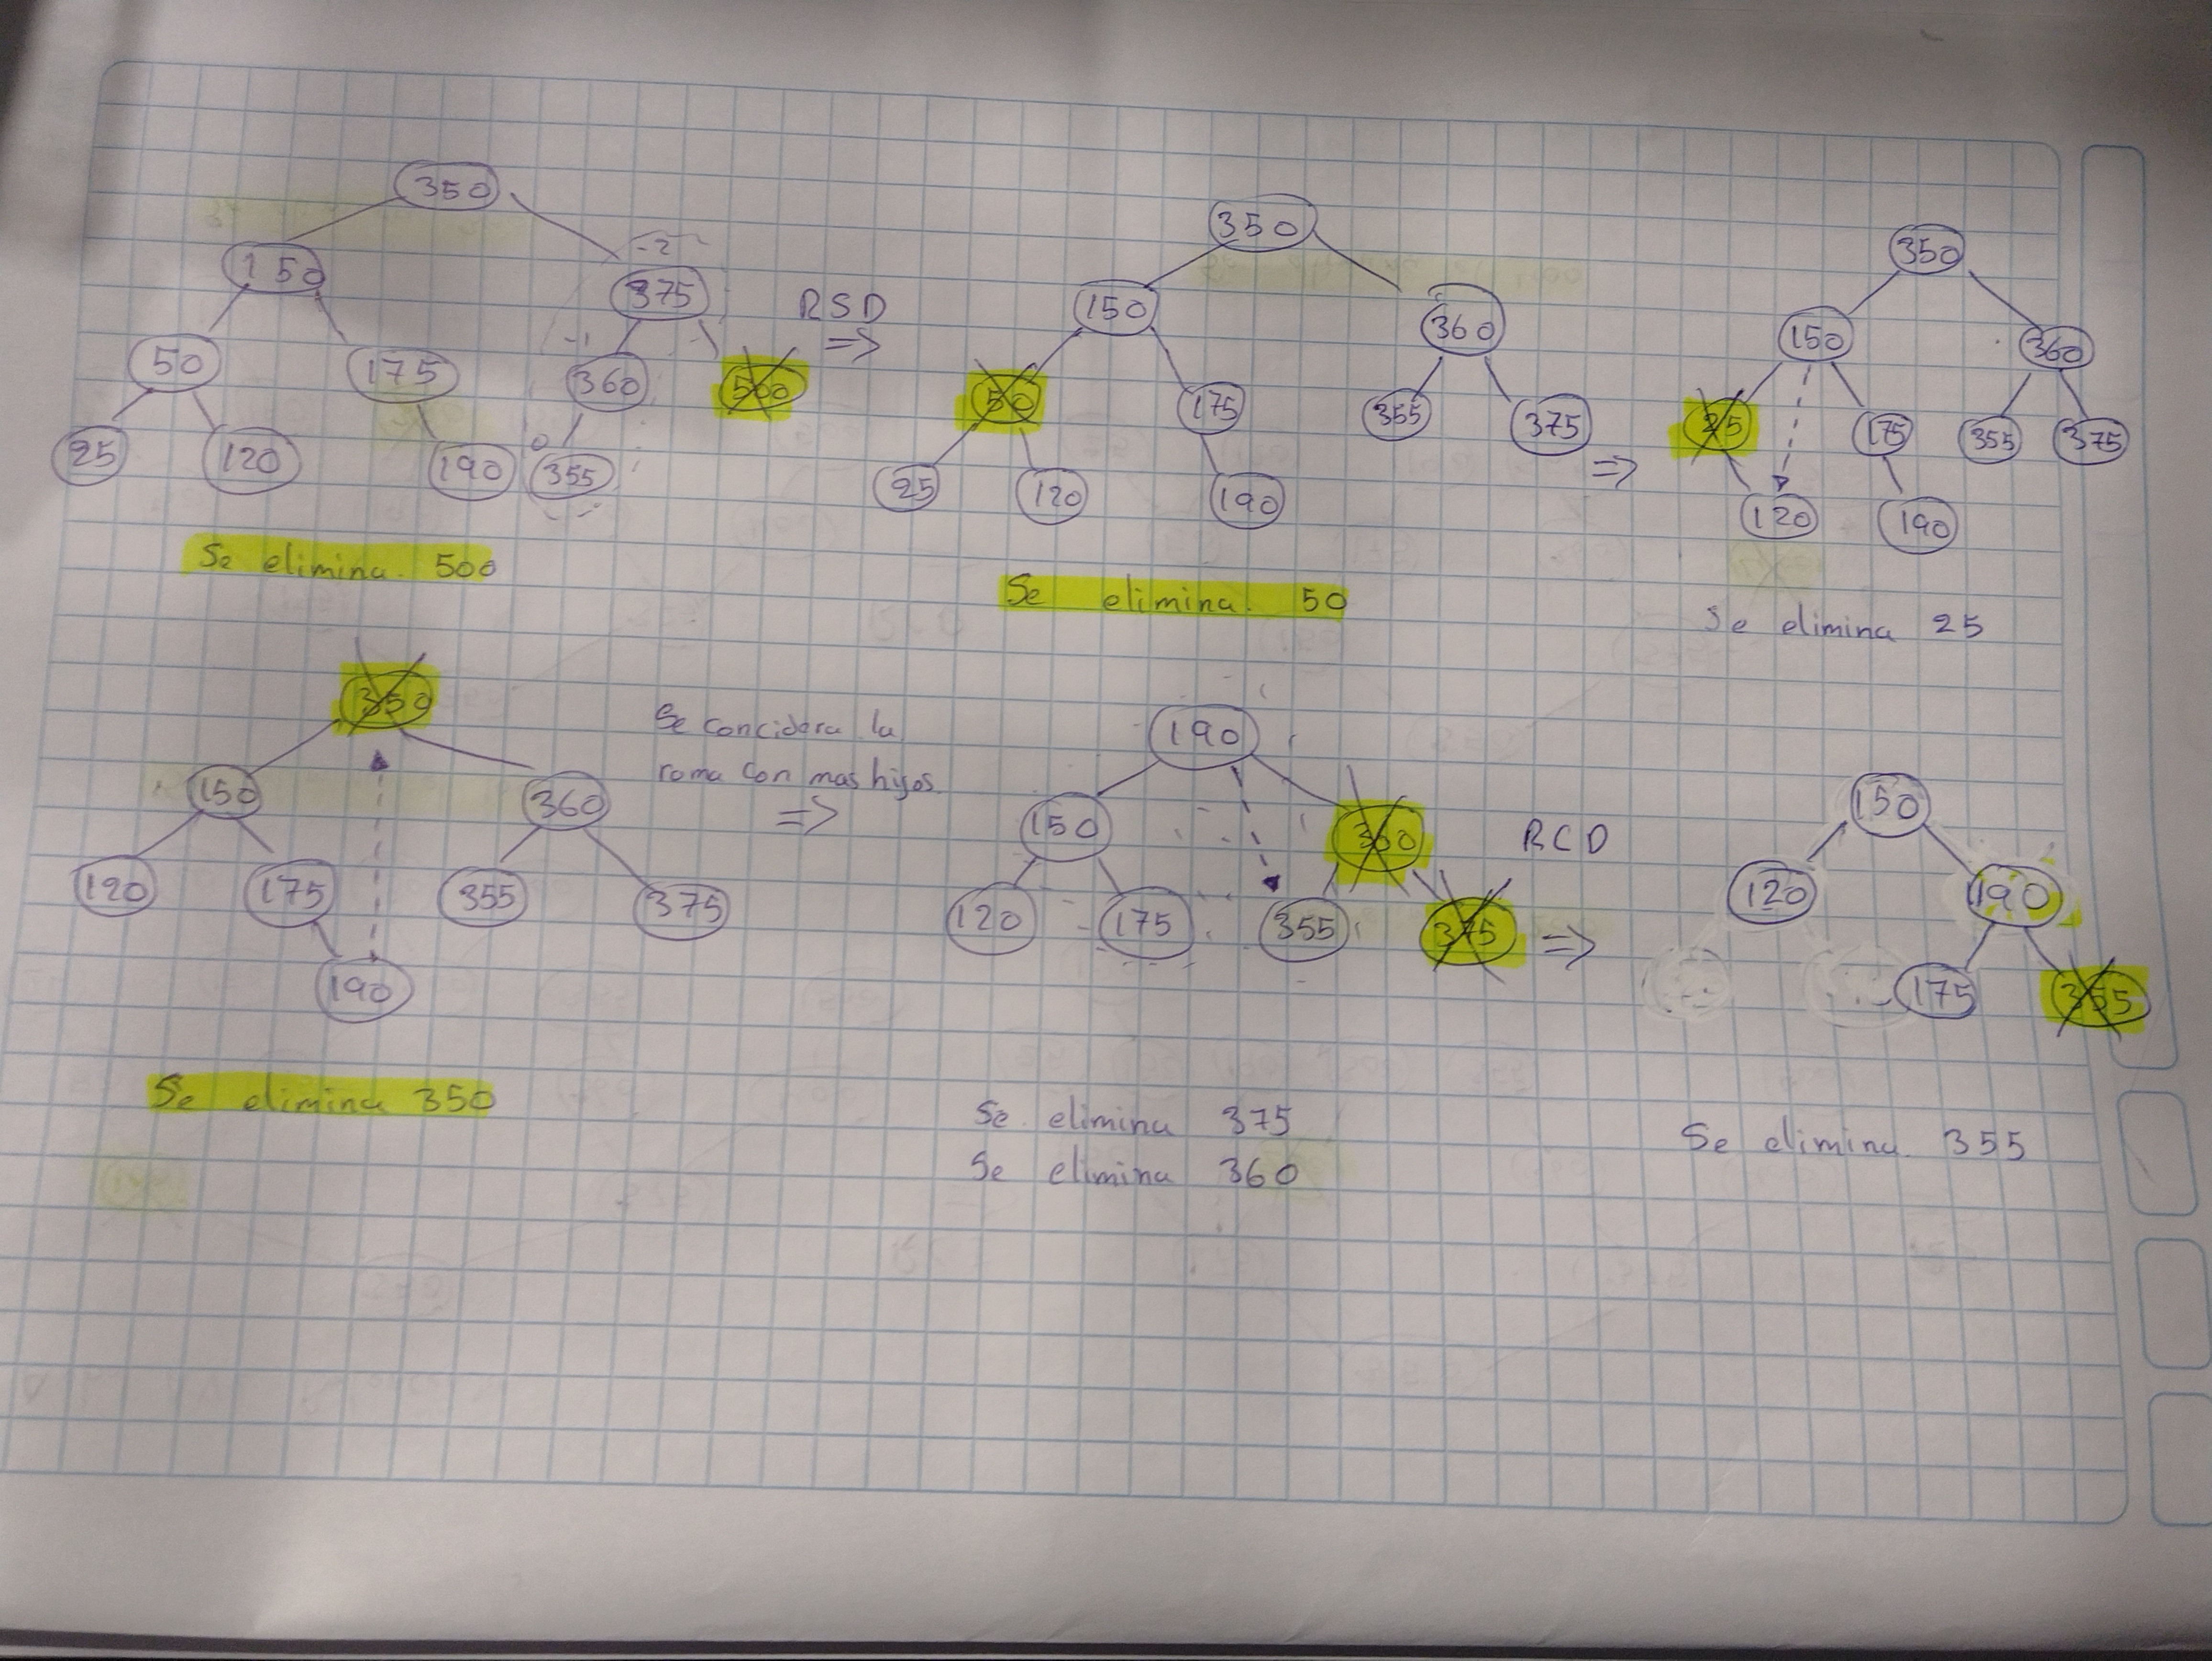 350
150
-2
375
50
175
-1
360
500
25
120
190
0
355
RSD
=>
Se elimina. 500
350
150
360
50
175
355
375
25
120
190
=>
Se elimina. 50
350
150
360
25
175
355
375
120
190
Se elimina 25
350
150
360
120
175
355
375
190
Se concidera la
rama con mas hijos.
=>
Se elimina 350
190
150
360
120
175
355
375
RCD
=>
Se elimina 375
Se elimina 360
150
120
190
175
355
Se elimina. 355